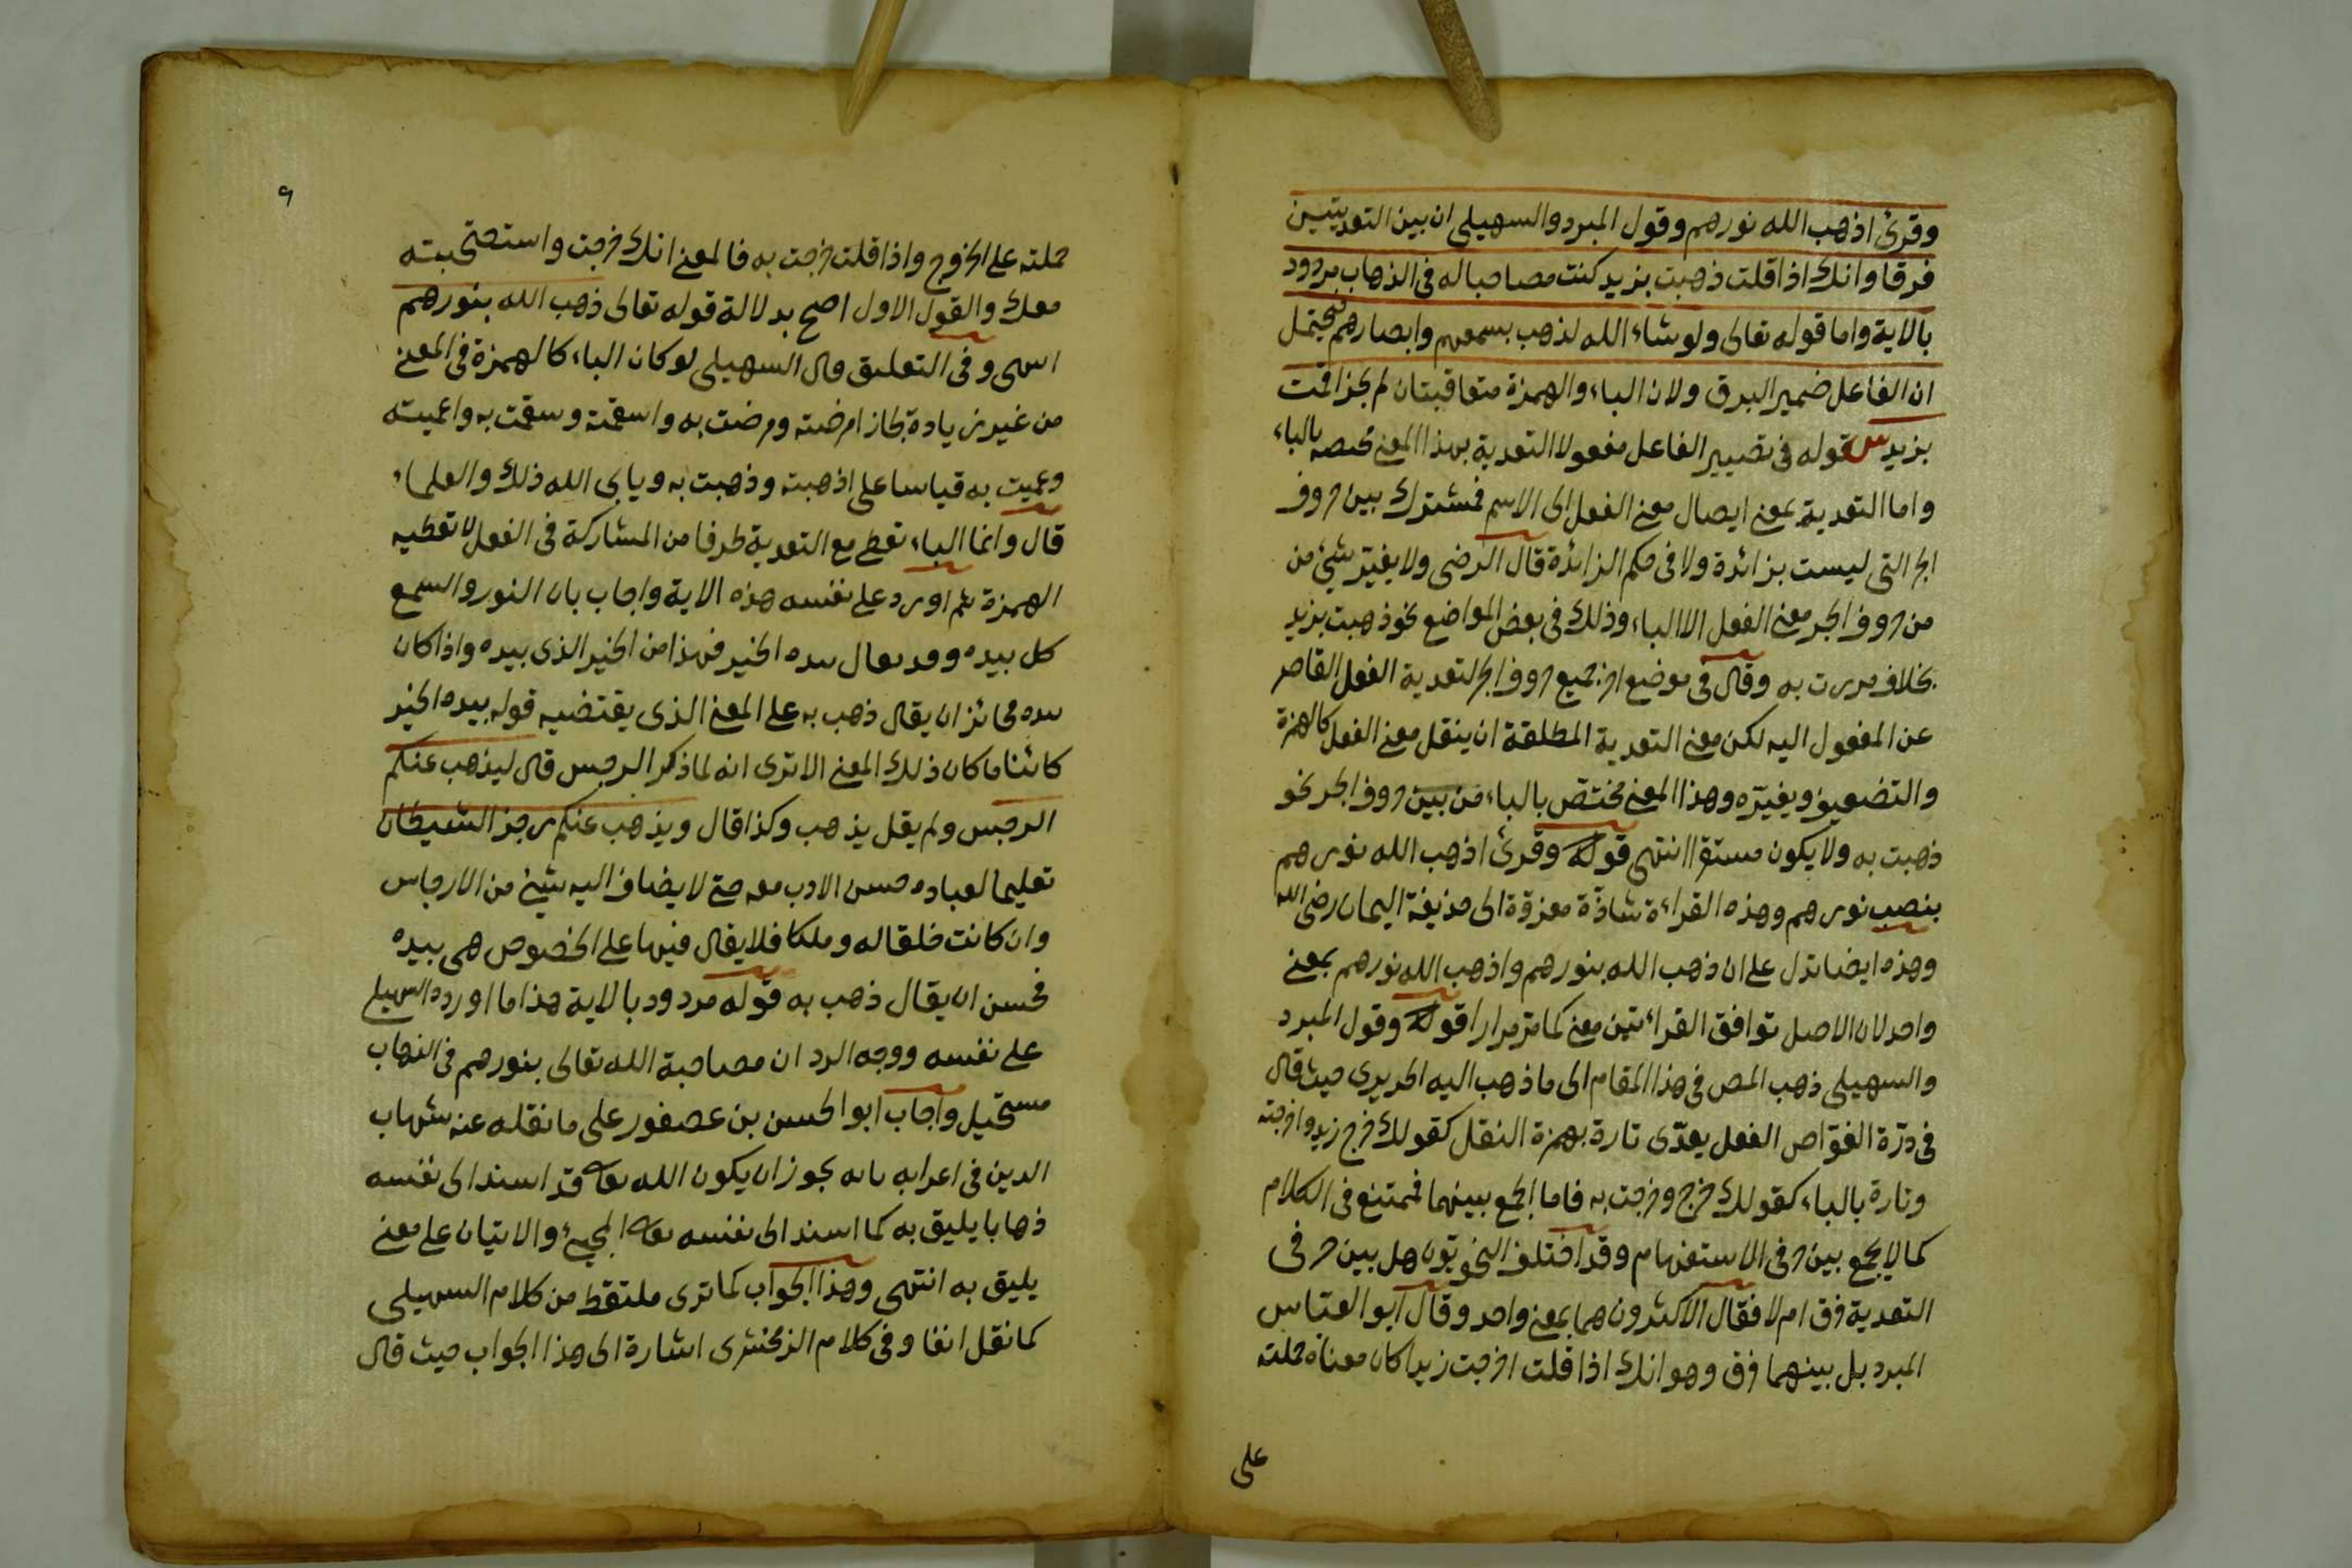 وقرئ اذهب الله نورهم وقول المبرد والسهيلى ان بين التعديتين
فرقا وانك اذا قلت ذهبت بزيد كنت مصاحبا له فى الذهاب مردود
بالاية واما قوله تعالى ولو شاء الله لذهب بسمعهم وابصارهم فيحتمل
ان الفاعل ضمير البرق ولان الباء والهمزة متعاقبتان لم يجز اقمت
بزيد س قوله فى تصيير الفاعل مفعولا التعدية بهذا المعنى مختصه بالباء
واما التعدية بمعنى ايصال معنى الفعل الى الاسم فمشترك بين حروف
الجر التى ليست بزائدة ولا فى حكم الزائدة قال الرضى ولا يغير شئ من
من حروف الجر معنى الفعل الا الباء وذلك فى بعض المواضع نحو ذهبت بزيد
بخلاف مررت به وقال فى موضع اخر جميع حروف الجر لتعدية الفعل القاصر
عن المفعول اليه لكن معنى التعدية المطلقة ان ينقل معنى الفعل كالهمزة
والتضعيف ويغيره وهذا المعنى مختص بالباء من بين حروف الجر نحو
ذهبت به ولا يكون مستقرا انتهى قوله وقرئ اذهب الله نورهم
بنصب نورهم وهذه القراءة شاذة معزوة الى حذيفة اليمان رضى الله
وهذه ايضا تدل على ان ذهب الله بنورهم واذهب الله نورهم بمعنى
واحد لان الاصل توافق القراءتين معنى كما مر مرارا قوله وقول المبرد
والسهيلى ذهب المص فى هذا المقام الى ما ذهب اليه الحريرى حيث قال
فى درة الغواص الفعل يعدى تارة بهمزة النقل كقولك خرج زيد واخرجته
وتارة بالباء كقولك خرج وخرجت به فاما الجمع بينهما فممتنع فى الكلام
كما لا يجمع بين حرفى الاستفهام وقد اختلف النحويون هل بين حرفى
التعدية فرق ام لا فقال الاكثرون هما بمعنى واحد وقال ابو العباس
المبرد بل بينهما فرق وهو انك اذا قلت اخرجت زيدا كان معناه حملته
على
٩
حملته على الخروج واذا قلت خرجت به فالمعنى انك خرجت واستصحبته
معك والقول الاول اصح بدلالة قوله تعالى ذهب الله بنورهم
انتهى وفى التعليق قال السهيلى لو كان الباء كالهمزة فى المعنى
من غير زيادة لجاز امرضته ومرضت به واسقمته وسقمت به واعميته
وعميت به قياسا على اذهبته وذهبت به ويابى الله ذلك والعلماء
قال وانما الباء تعطى مع التعدية طرفا من المشاركة فى الفعل لا تعطيه
الهمزة ثم اورد على نفسه هذه الاية واجاب بان النور والسمع
كل بيده وقد يقال بيده الخير فهذا من الخير الذى بيده واذا كان
بيده فجائز ان يقال ذهب به على المعنى الذى يقتضيه قوله بيده الخير
كائنا ما كان ذلك المعنى الا ترى انه لما ذكر الرجس قال ليذهب عنكم
الرجس ولم يقل يذهب وكذا قال ويذهب عنكم رجز الشيطان
تعليما لعباده حسن الادب معه حتى لا يضاف اليه شئ من الارجاس
وان كانت خلقا له وملكا فلا يقال فيها على الخصوص هى بيده
فحسن ان يقال ذهب به قوله مردود بالاية هذا ما اورده السهيلى
على نفسه ووجه الرد ان مصاحبة الله تعالى بنورهم فى الذهاب
مستحيل واجاب ابو الحسن بن عصفور على ما نقله عنه شهاب
الدين فى اعرابه بانه يجوز ان يكون الله تعالى قد اسند الى نفسه
ذهابا يليق به كما اسند الى نفسه تعالى المجئ والاتيان على معنى
يليق به انتهى وهذا الجواب كما ترى ملتقط من كلام السهيلى
كما نقل انفا وفى كلام الزمخشرى اشارة الى هذا الجواب حيث قال